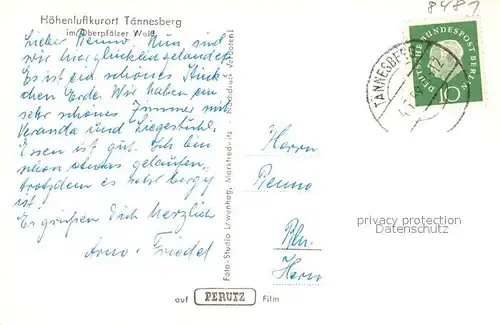 Höhenluftkurort Tännesberg
im Oberpfälzer Wald
8481
Lieber Benno. Nun sind
wir hier glücklich gelandet.
Es ist ein schönes Stück-
chen Erde. Wir haben ein
sehr schönes Zimmer mit
Veranda und Liegestuhl.
Essen ist gut. Ich bin
schon etwas gelaufen,
trotzdem es sehr bergig
ist.
Es grüßen Dich herzlich
Arno. Friedel
Foto-Studio Löwenhag, Marktredwitz - Nachdruck verboten!
TÄNNESBERG
DEUTSCHE BUNDESPOST BERLIN
10
Herrn
Benno
Bln.
Herm
privacy protection
Datenschutz
auf PERUTZ Film